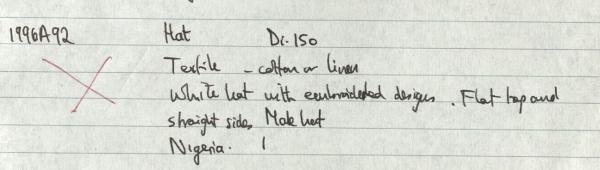 1996A92 Hat Di. 150
Textile - cotton or linen
White hat with embroidered designs. Flat top and
straight sides, Male hat
Nigeria.